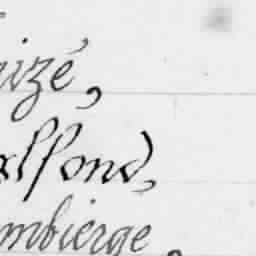 uizé,
alfond,
mbierge,